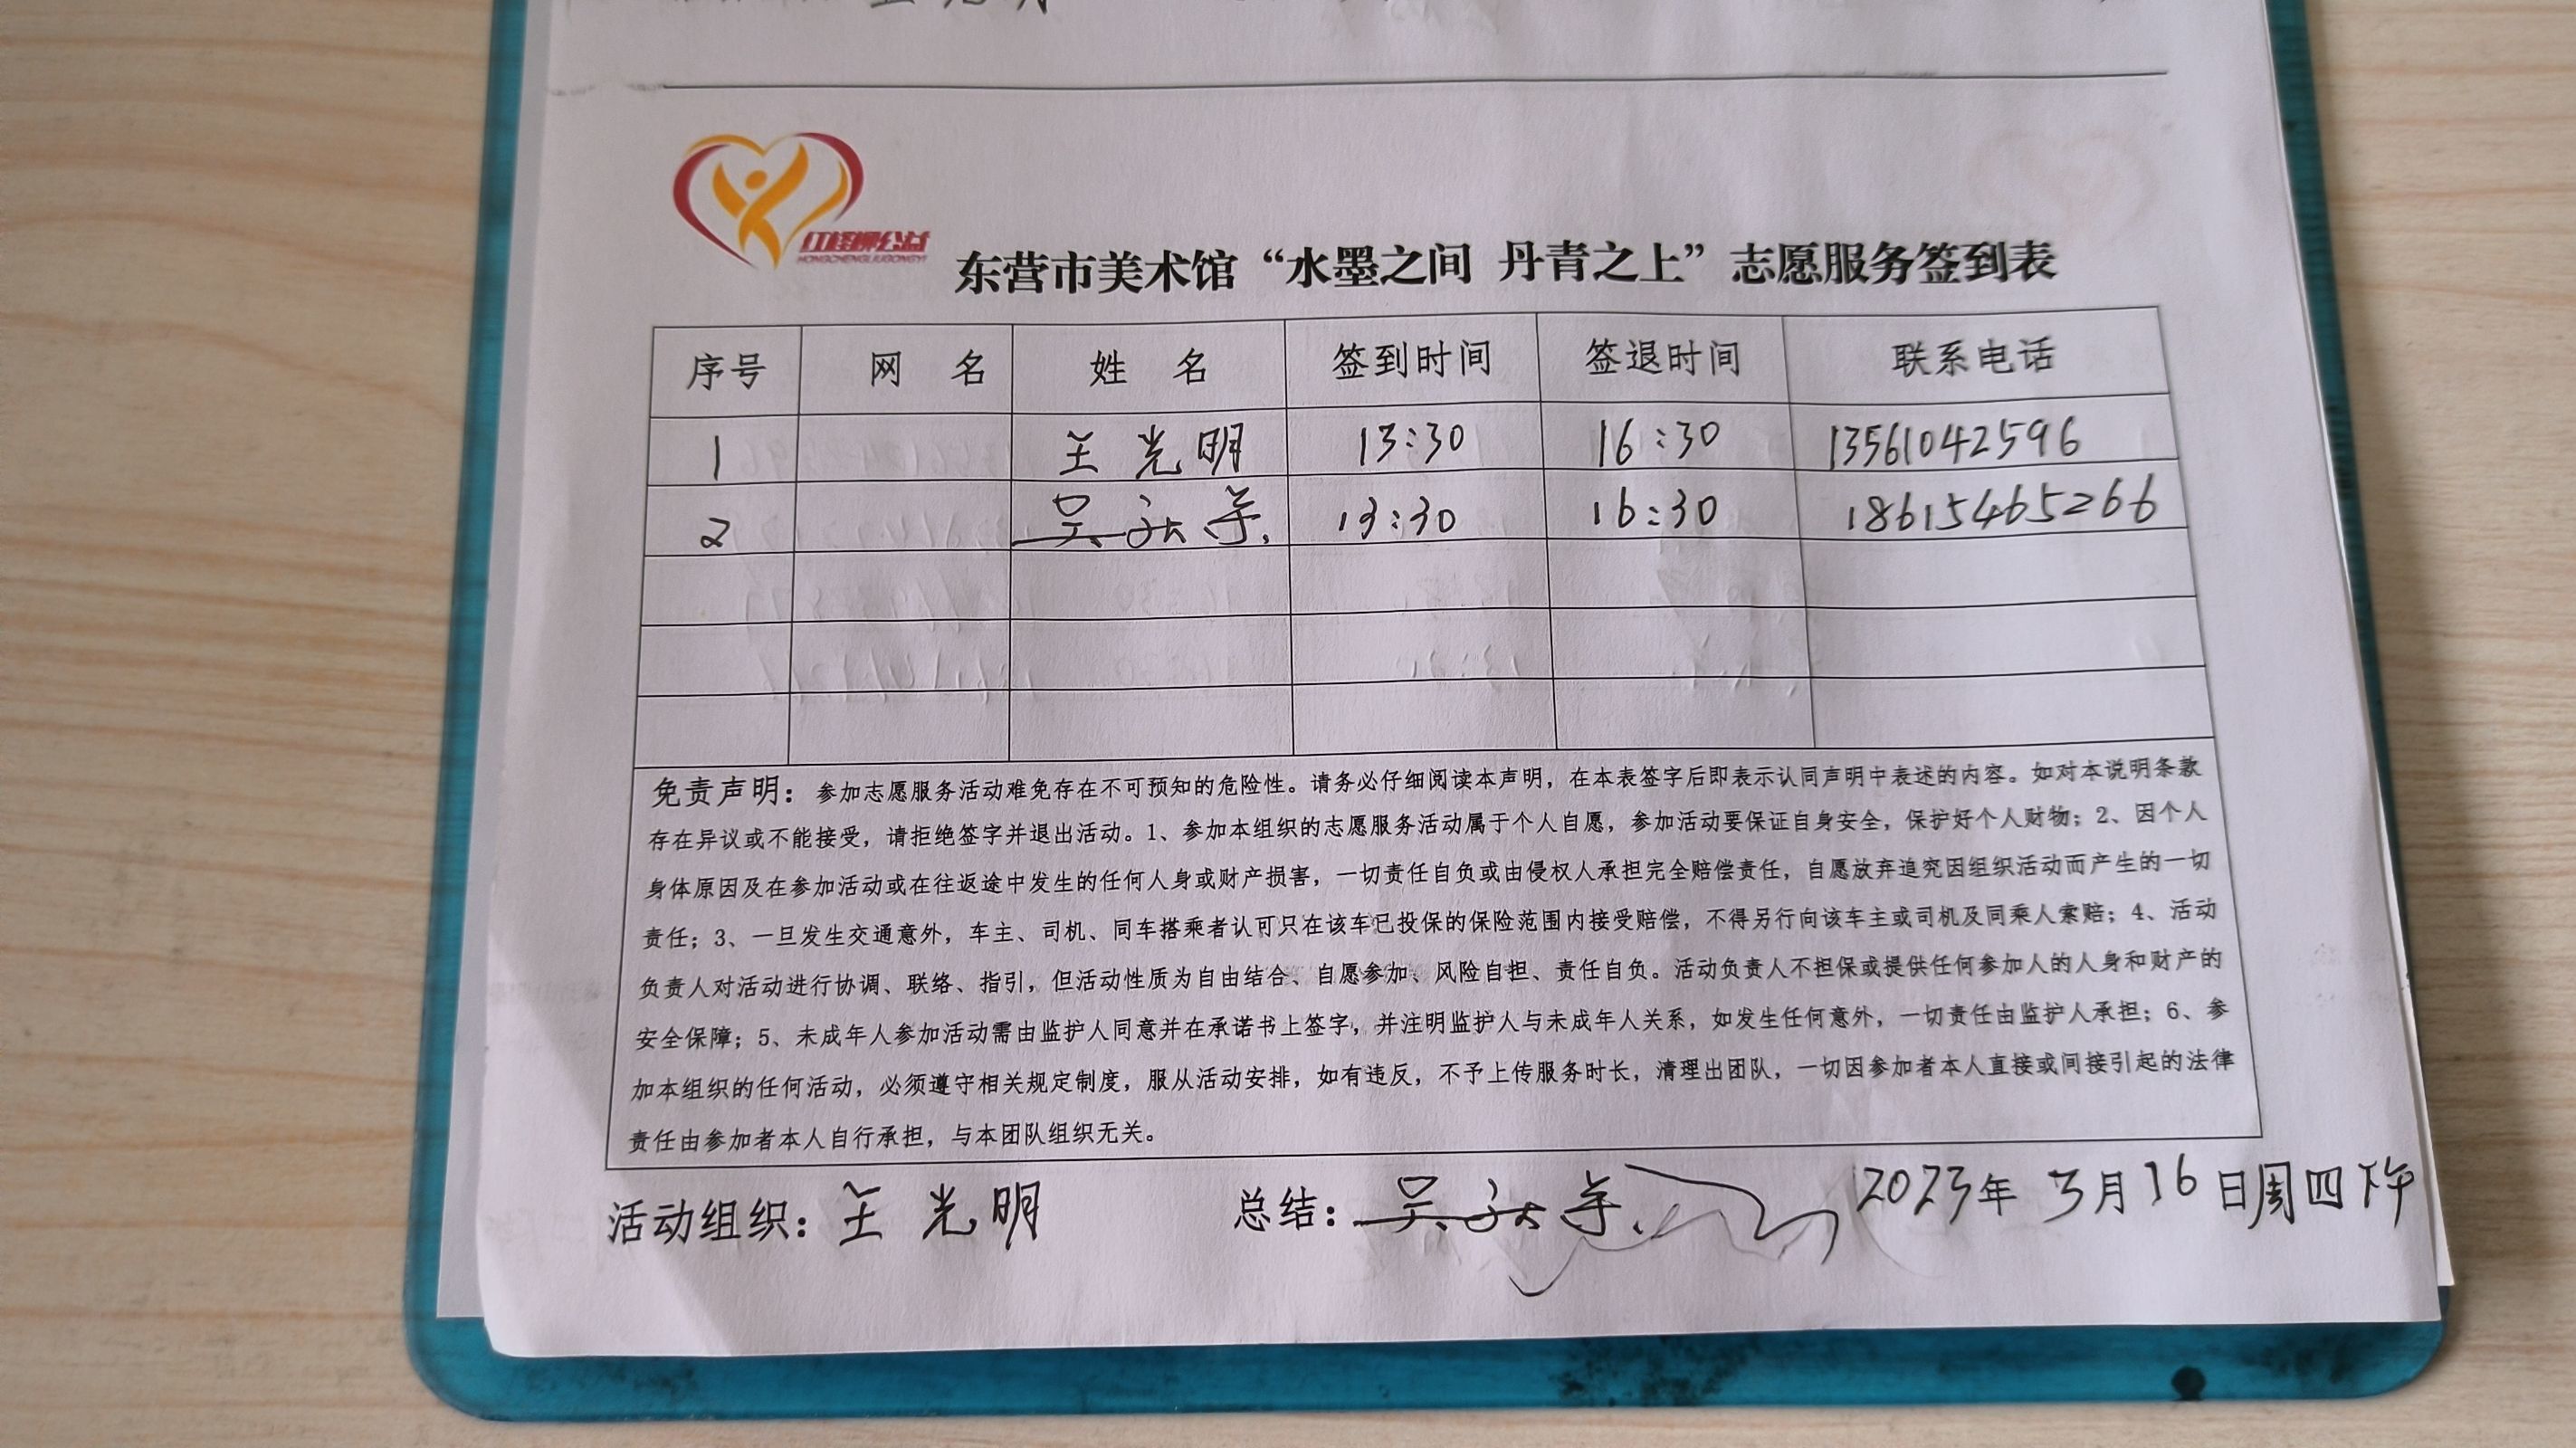 红柽柳公益
HONGCHENGLIUGONGYI
东营市美术馆“水墨之间 丹青之上”志愿服务签到表
序号 网 名 姓 名 签到时间 签退时间 联系电话
1 王光明 13:30 16:30 13561042596
2 吴 13:30 16:30 18615465266
免责声明：参加志愿服务活动难免存在不可预知的危险性。请务必仔细阅读本声明，在本表签字后即表示认同声明中表述的内容。如对本说明条款
存在异议或不能接受，请拒绝签字并退出活动。1、参加本组织的志愿服务活动属于个人自愿，参加活动要保证自身安全，保护好个人财物；2、因个人
身体原因及在参加活动或在往返途中发生的任何人身或财产损害，一切责任自负或由侵权人承担完全赔偿责任，自愿放弃追究因组织活动而产生的一切
责任；3、一旦发生交通意外，车主、司机、同车搭乘者认可只在该车已投保的保险范围内接受赔偿，不得另行向该车主或司机及同乘人索赔；4、活动
负责人对活动进行协调、联络、指引，但活动性质为自由结合、自愿参加、风险自担、责任自负。活动负责人不担保或提供任何参加人的人身和财产的
安全保障；5、未成年人参加活动需由监护人同意并在承诺书上签字，并注明监护人与未成年人关系，如发生任何意外，一切责任由监护人承担；6、参
加本组织的任何活动，必须遵守相关规定制度，服从活动安排，如有违反，不予上传服务时长，清理出团队，一切因参加者本人直接或间接引起的法律
责任由参加者本人自行承担，与本团队组织无关。
活动组织：王光明 总结：吴 2023年3月16日周四下午